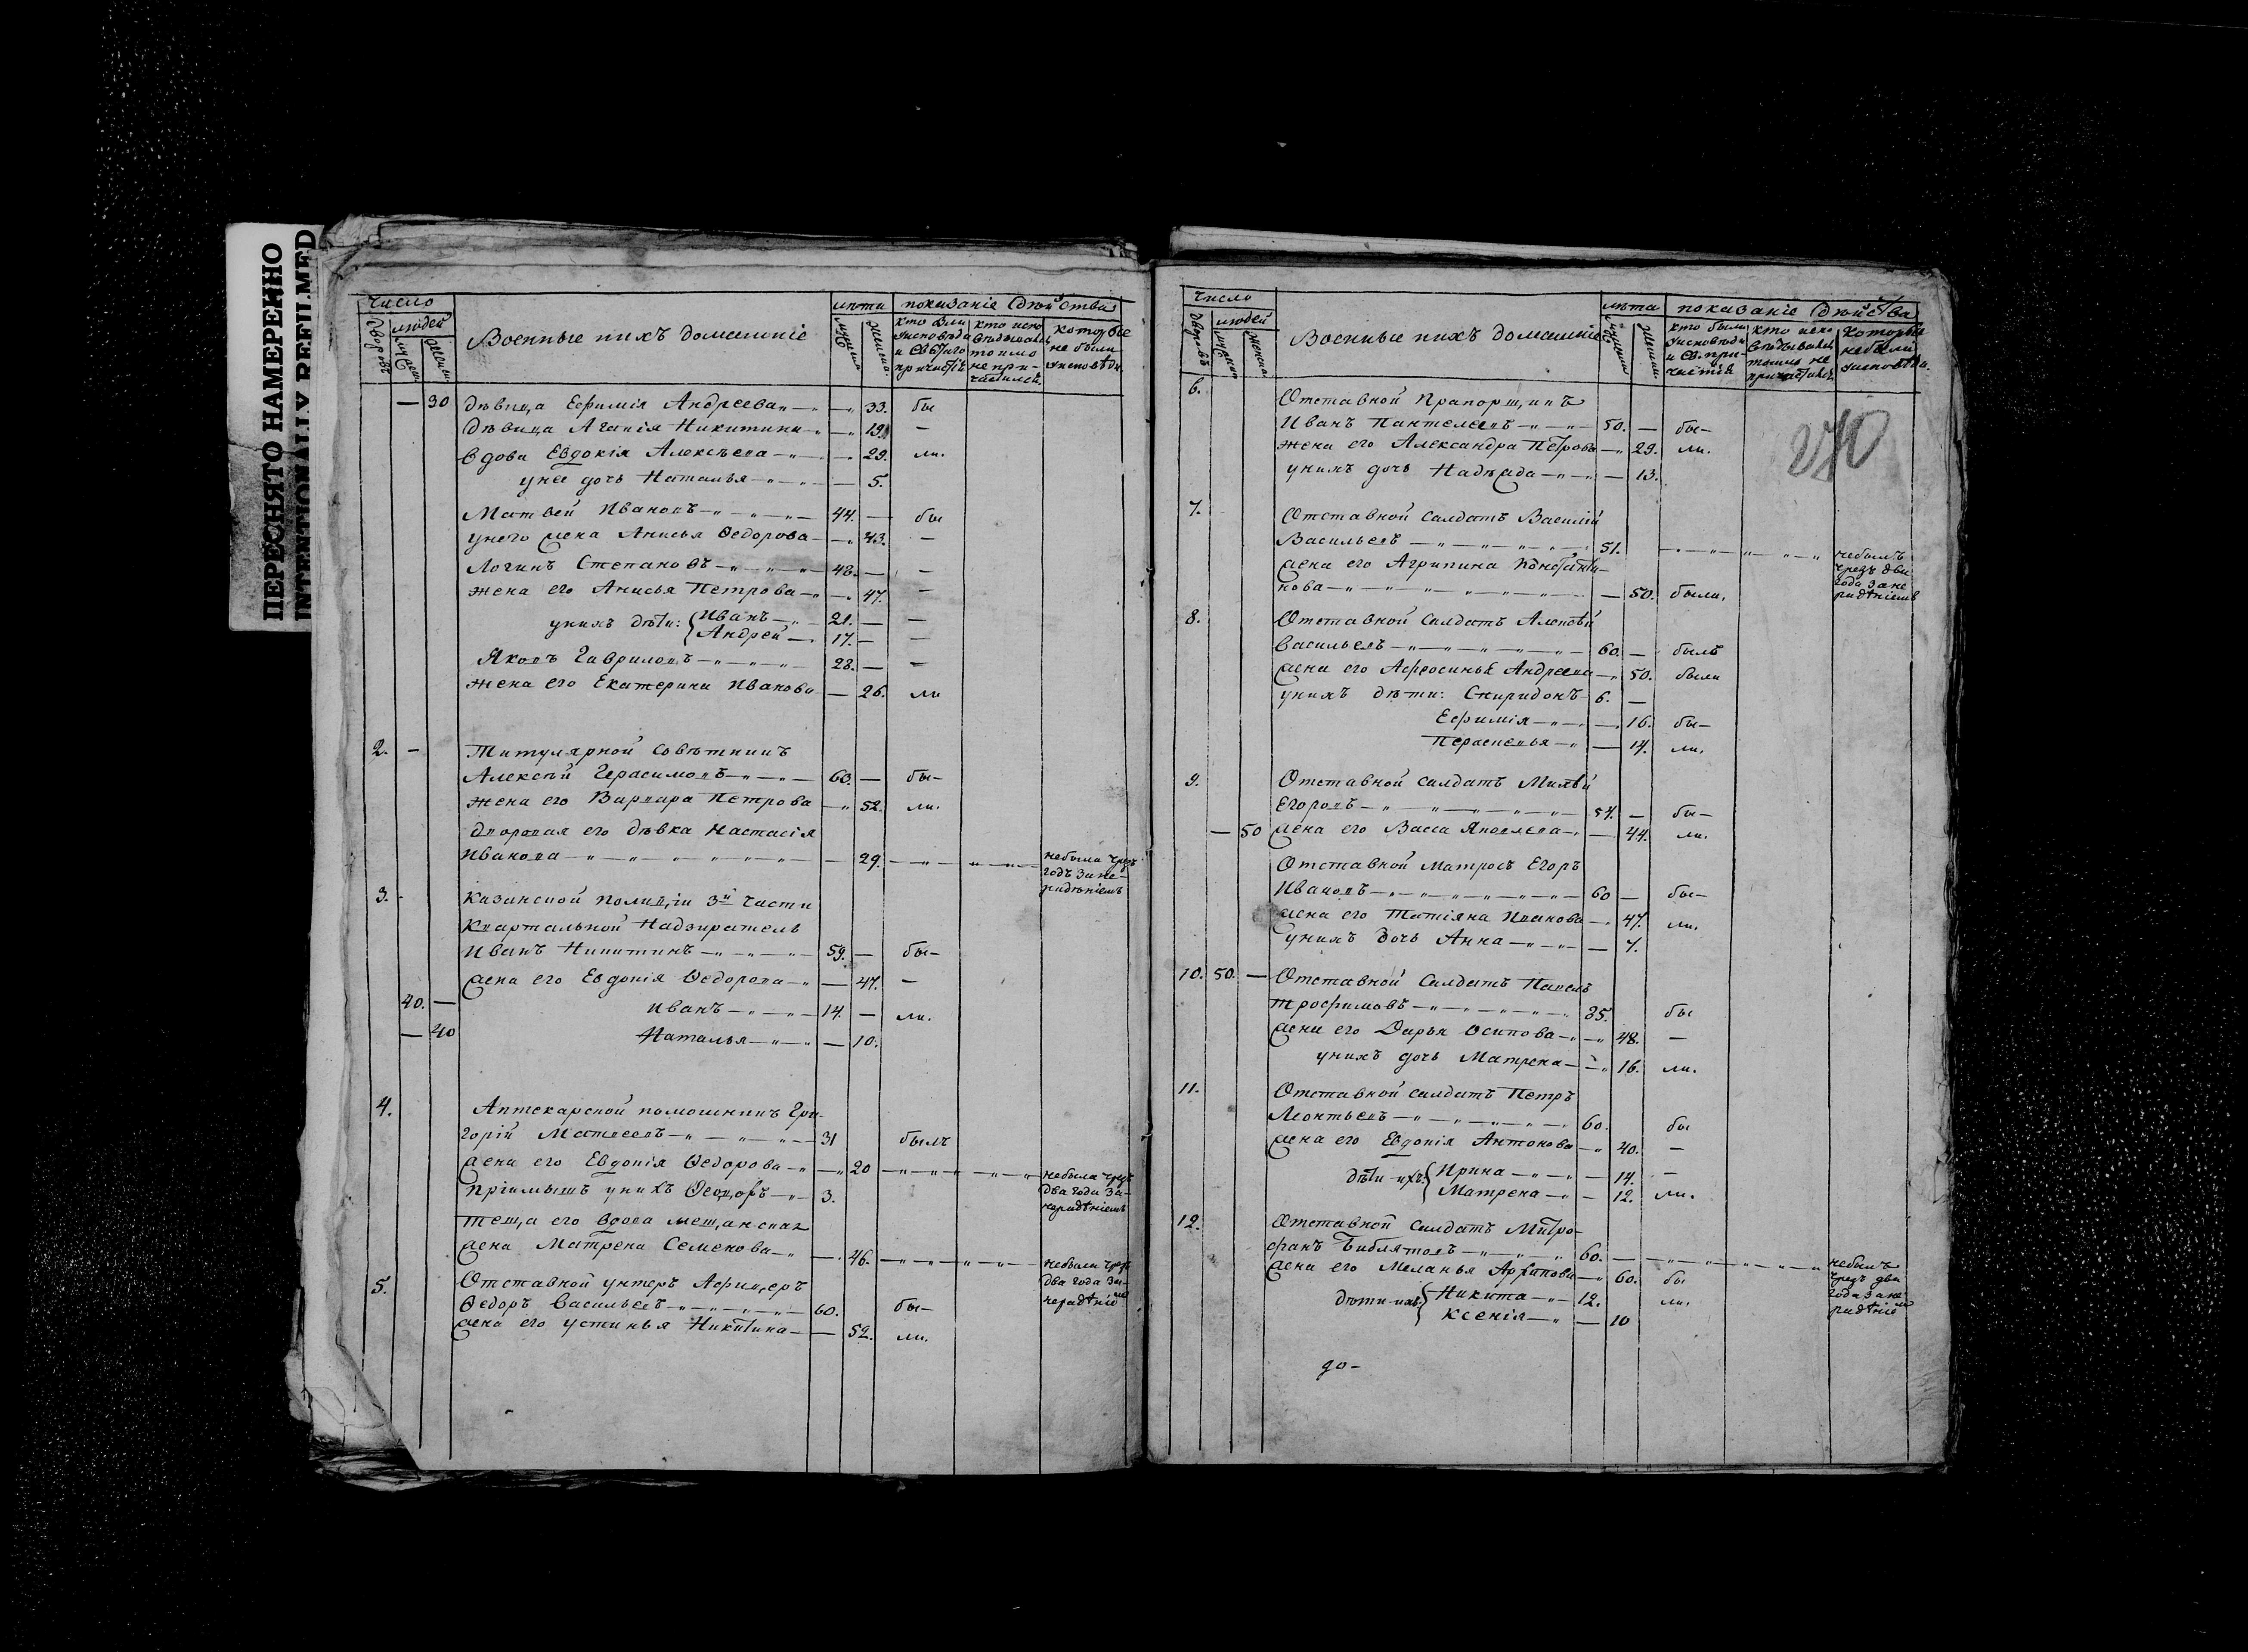 ПЕРЕСНЯТО НАМЕРЕННО
INTENTIONALLY REFILMED
Число
лѣта
показаніе Дѣйства
дворовъ
людей
Военные ихъ домашніе
которые
не были
30 Дѣвица Ефимія Андреева 33. бы
Дѣвица Агапія Никитина 19. —
вдова Евдокія Алексѣева 29. ли.
у нее дочь Наталья 5.
Матвей Ивановъ 44. — бы
унего жена Анисья Ѳедорова 43. —
Логинъ Степановъ 48. — —
жена его Анисья Петрова 47. —
унихъ дѣти: Иванъ 21. — —
Андрей 17. — —
Яковъ Гавриловъ 28. — —
жена его Екатерина Иванова — 26. ли
2. — Титулярной совѣтникъ
Алексѣй Герасимовъ 60. — бы-
жена его Варвара Петрова 52. ли.
дворовая его дѣвка Настасія
Иванова 29. небыла чрезъ
годъ за не-
радѣніемъ
3. Казанской полиціи 3й части
Квартальной Надзиратель
Иванъ Никитинъ 59. — бы-
жена его Евдокія Ѳедорова — 47. —
40. — Иванъ 14. — ли.
— 40 Наталья — 10.
4. Аптекарской помошникъ Гри-
горій Матвеевъ 31 былъ
жена его Евдокія Ѳедорова 20 небыла чрезъ
два года за-
нерадѣніемъ
пріимышъ унихъ Ѳеодоръ 3.
теща его вдова мещанская
жена Матрена Семенова 46. небыла чрезъ
два года за-
нерадѣніемъ
5. Отставной унтеръ Афицеръ
Ѳедоръ Васильевъ 60. бы-
жена его Устинья Никитина — 52. ли.
Число
лѣта
показаніе Дѣйства
дворовъ
людей
Военные ихъ домашніе
кто были
уисповѣди
и Св. при-
частія
которые
небыли
уисповѣди.
270
6. Отставной Прапорщикъ
Иванъ Пантелеевъ 50. — бы-
жена его Александра Петрова 29. ли.
унихъ дочь Надежда — 13.
7. Отставной салдатъ Василій
Васильевъ 51. небылъ
чрезъ два
года за не
радѣніемъ
жена его Агрипина Константи-
нова — 50. была.
8. Отставной салдатъ Алексѣй
Васильевъ 60. — былъ
жена его Афросинья Андреева 50. была
унихъ дѣти: Спиридонъ 6. —
Ефимія 16. бы-
Парасковья — 14. ли.
9. Отставной салдатъ Матвѣй
Егоровъ 54. — бы-
— 50 жена его Васса Яковлева — 44. ли.
Отставной матросъ Егоръ
Ивановъ 60 — бы-
жена его Татіяна Иванова 47. ли.
унихъ дочь Анна — 7.
10. 50. — Отставной Салдатъ Павелъ
Трофимовъ 35. бы
жена его Дарья Осипова 48. —
унихъ дочь Матрена 16. ли.
11. Отставной салдатъ Петръ
Леонтьевъ 60. бы
жена его Евдокія Антонова 40. —
дѣти ихъ: Ирина — 14. —
Матрена — 12. ли.
12. Отставной салдатъ Митро-
фанъ 60. небылъ
чрезъ два
года за не
радѣніемъ
жена его Меланья Архипова 60. бы
дѣти ихъ: Никита 12. ли.
Ксенія — 10
до-